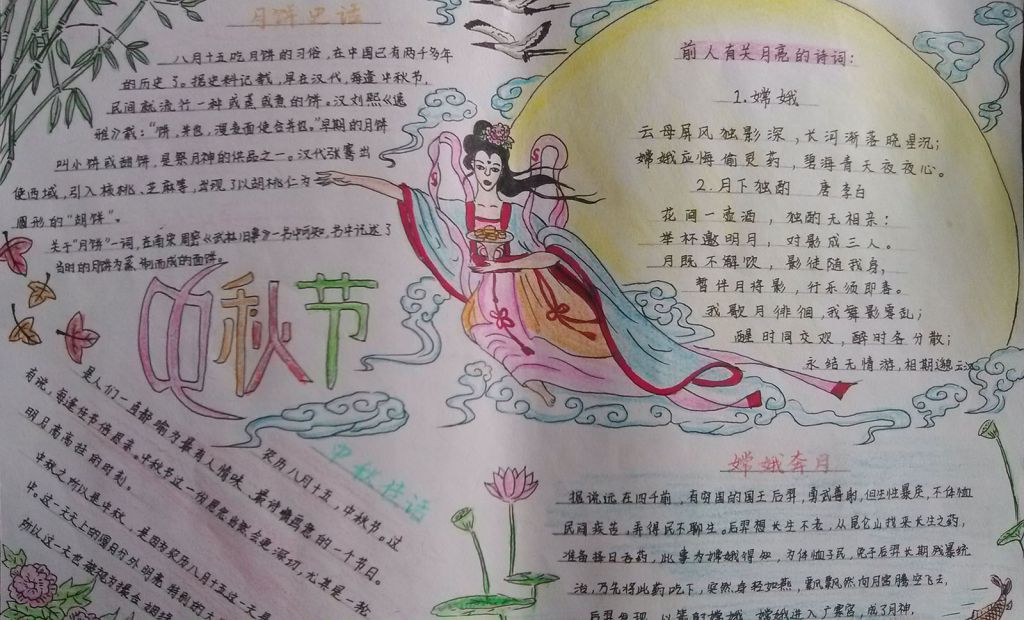 月饼史话
八月十五吃月饼的习俗，在中国已有两千多年
的历史了。据史料记载，早在汉代，每逢中秋节，
民间就流行一种或蒸或煮的饼。汉刘熙《逸
雅》载：“饼，并也，溲麦面使合并也。”早期的月饼
叫小饼或甜饼，是祭月神的供品之一。汉代张骞出
使西域，引入核桃、芝麻等，出现了以胡桃仁为
圆形的“胡饼”。
关于“月饼”一词，在南宋周密《武林旧事》一书中可知，书中记述了
当时的月饼为蒸制而成的面饼。
中秋节
前人有关月亮的诗词：
1.嫦娥
云母屏风独影深，长河渐落晓星沉；
嫦娥应悔偷灵药，碧海青天夜夜心。
2.月下独酌 唐李白
花间一壶酒，独酌无相亲：
举杯邀明月，对影成三人。
月既不解饮，影徒随我身，
暂伴月将影，行乐须即春。
我歌月徘徊，我舞影零乱；
醒时同交欢，醉时各分散；
永结无情游，相期邈云汉
中秋佳话
农历八月十五，中秋节。这
是人们一直都喻为最有人情味、最诗情画意的一个节日。
有说，每逢佳节倍思亲。中秋节这一份思念当然会更深切，尤其是一轮
明月南高挂的时刻。
中秋之所以是中秋，是因为农历八月十五这一天是
中。这一天天上的圆月分外明亮
所以这一天也被视为撮合
嫦娥奔月
据说远在四千前，有穷国的国王后羿，勇武善射，但生性暴戾，不体恤
民间疾苦，弄得民不聊生。后羿想长生不老，从昆仑山找来长生之药，
准备择日吞药，此事为嫦娥得知，为体恤子民，免于后羿长期残暴统
治，乃先将此药吃下，突然身轻如燕，飘飘然向月宫腾空飞去，
后羿发现，以箭射嫦娥，嫦娥进入广寒宫，成了月神，